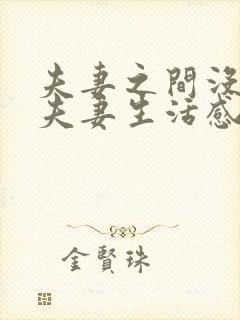 夫妻之間沒
夫妻生活感
金賢珠